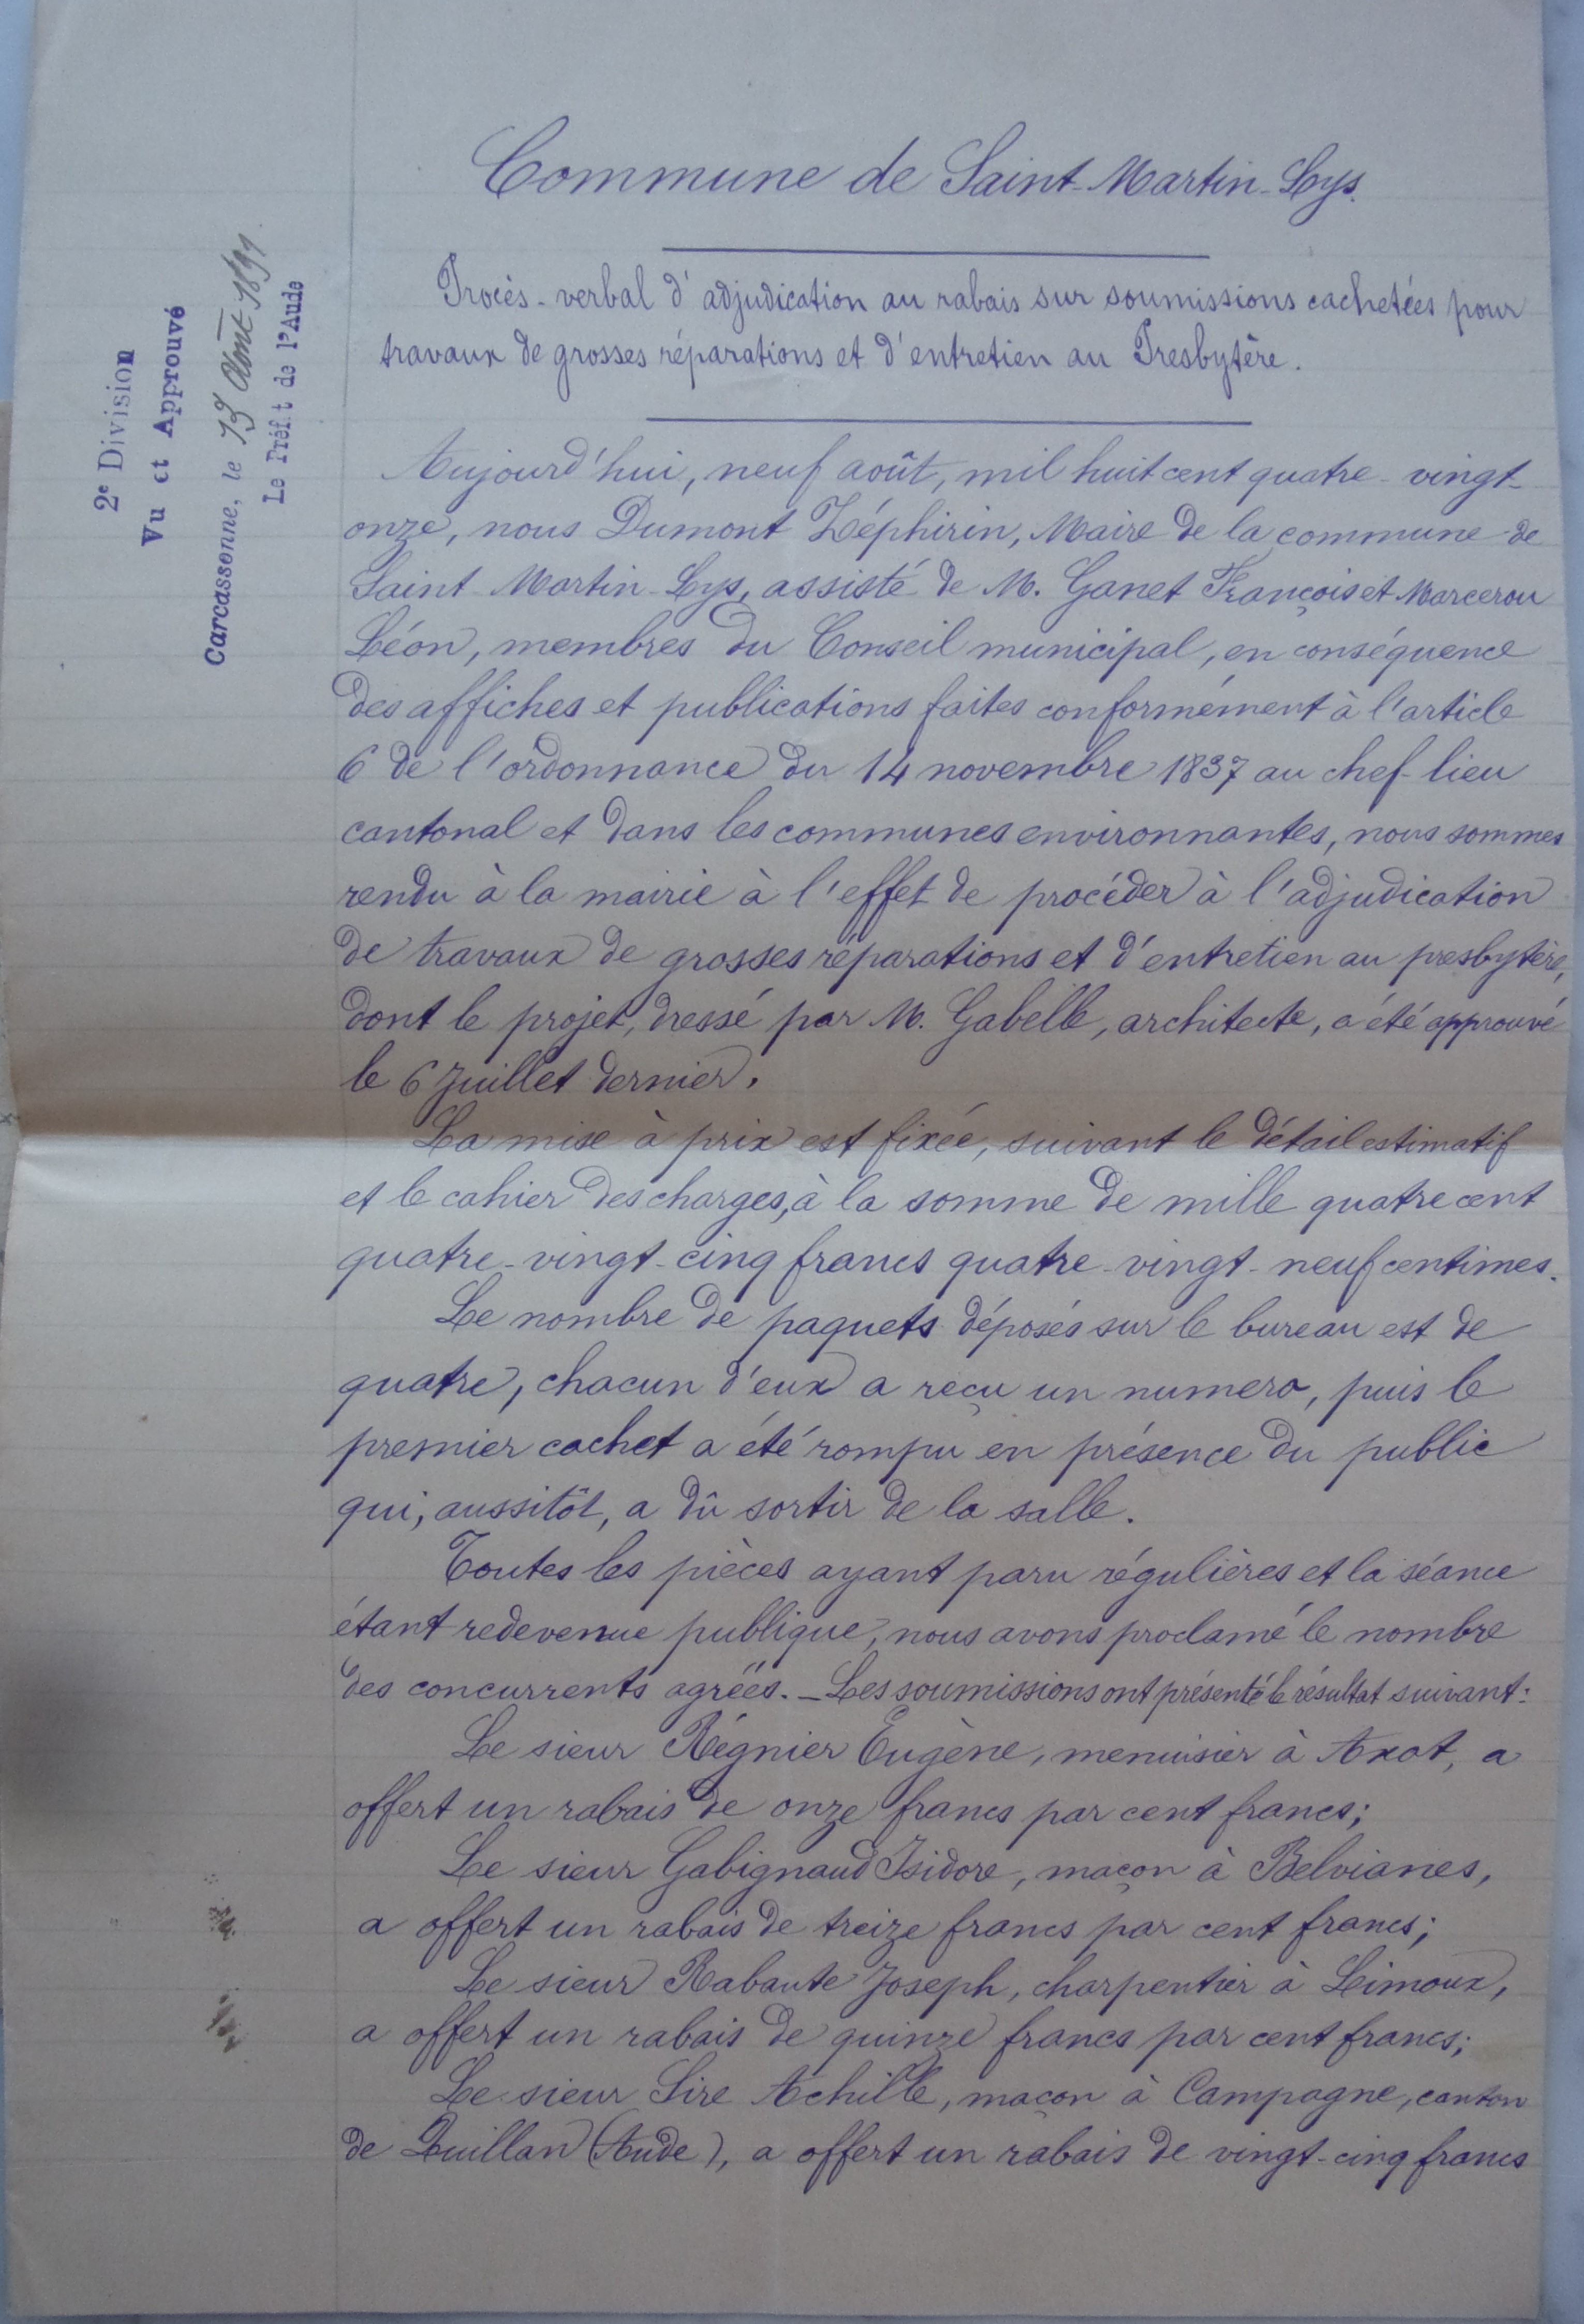 Commune de Saint-Martin-Lys.
Procès-verbal d'adjudication au rabais sur soumissions cachetées pour
travaux de grosses réparations et d'entretien au Presbytère.
2e Division
Vu et Approuvé
Carcassonne, le 13 Août 1891
Le Préfet de l'Aude
Aujourd'hui, neuf août, mil huit cent quatre-vingt-
onze, nous Dumont Zéphirin, Maire de la commune de
Saint-Martin-Lys, assisté de M. Ganet François et Marcerou
Léon, membres du Conseil municipal, en conséquence
des affiches et publications faites conformément à l'article
6 de l'ordonnance du 14 novembre 1837 au chef-lieu
cantonal et dans les communes environnantes, nous sommes
rendu à la mairie à l'effet de procéder à l'adjudication
de travaux de grosses réparations et d'entretien au presbytère,
dont le projet, dressé par M. Gabelle, architecte, a été approuvé
le 6 Juillet dernier.
La mise à prix est fixée, suivant le détail estimatif
et le cahier des charges, à la somme de mille quatre cent
quatre-vingt-cinq francs quatre-vingt-neuf centimes.
Le nombre de paquets déposés sur le bureau est de
quatre, chacun d'eux a reçu un numero, puis le
premier cachet a été rompu en présence du public
qui, aussitôt, a dû sortir de la salle.
Toutes les pièces ayant paru régulières et la séance
étant redevenue publique, nous avons proclamé le nombre
des concurrents agréés. - Les soumissions ont présenté le résultat suivant:
Le sieur Régnier Eugène, menuisier à Axat, a
offert un rabais de onze francs par cent francs;
Le sieur Gabignaud Isidore, maçon à Belvianes,
a offert un rabais de treize francs par cent francs;
Le sieur Rabaute Joseph, charpentier à Limoux,
a offert un rabais de quinze francs par cent francs;
Le sieur Sire Achille, maçon à Campagne, canton
de Quillan (Aude), a offert un rabais de vingt-cinq francs